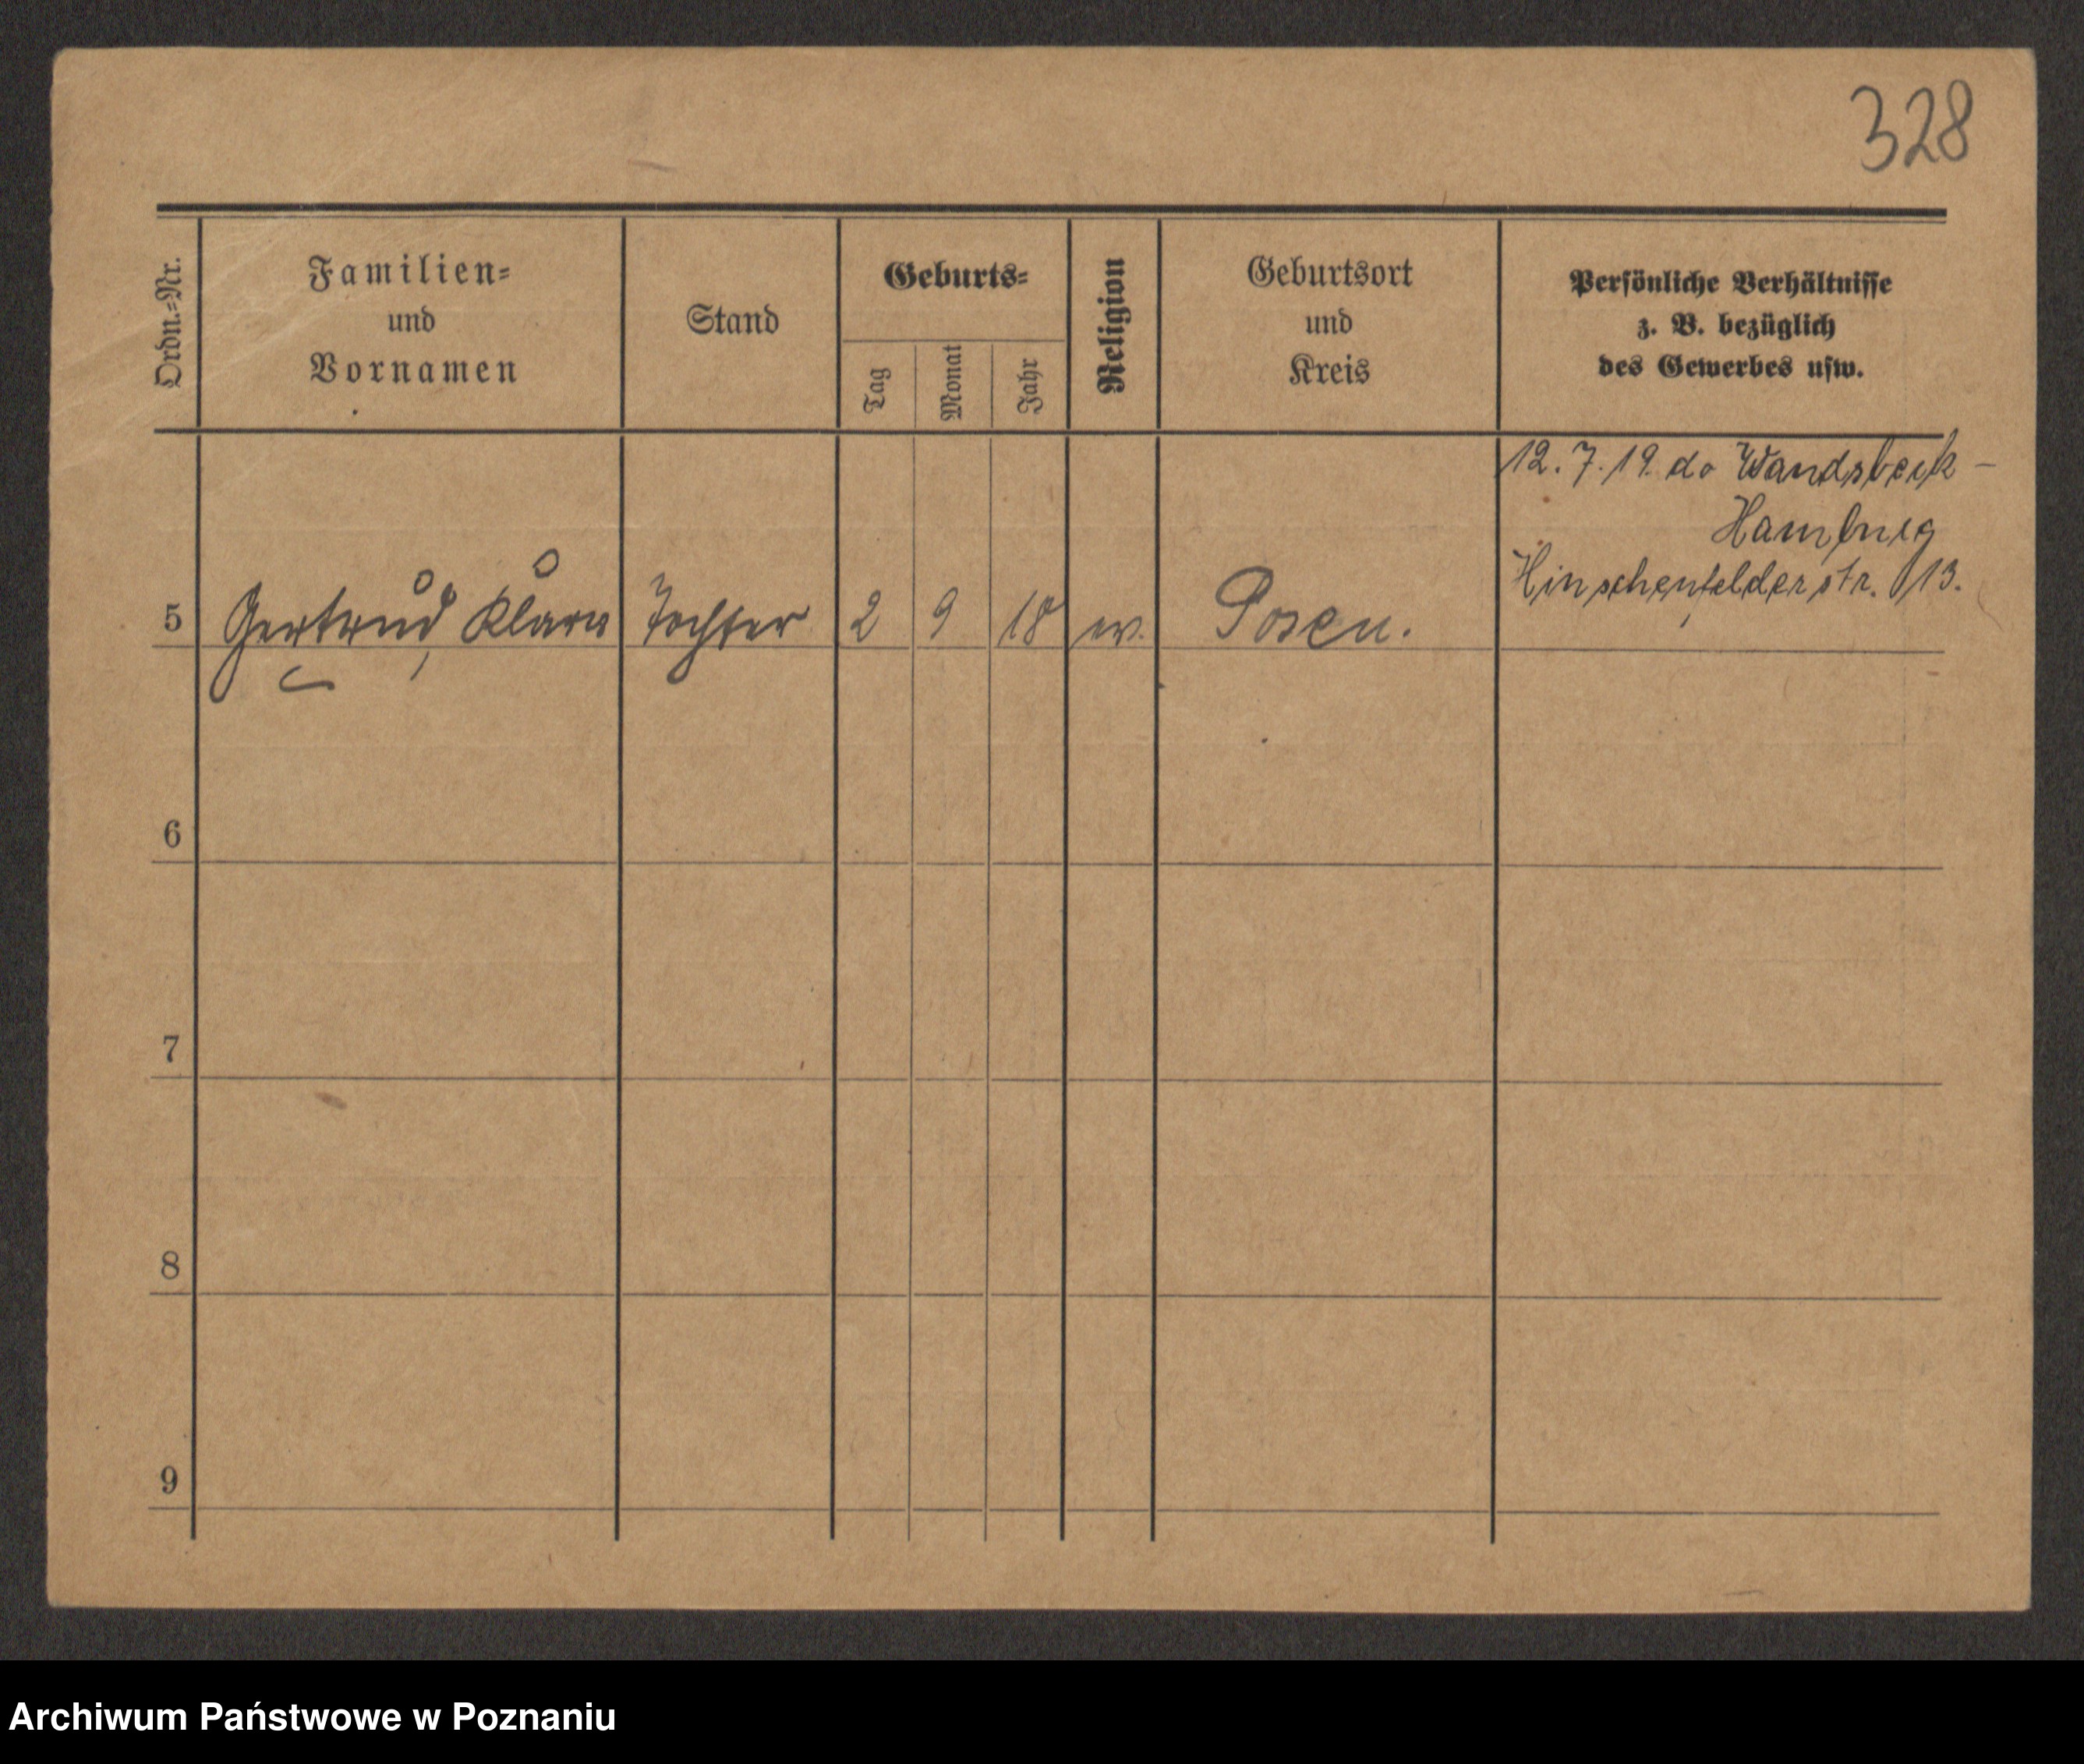 328
Ordn.-Nr.
Familien-
und
Vornamen
Stand
Geburts-
Tag
Monat
Jahr
Religion
Geburtsort
und
Kreis
Persönliche Verhältnisse
z. B. bezüglich
des Gewerbes usw.
12.7.19. do Wandsbeck -
Hamburg
Hinschenfelderstr. 13.
5 Gertrud, Klara Tochter 2 9 18 ev. Posen.
6
7
8
9
Archiwum Państwowe w Poznaniu